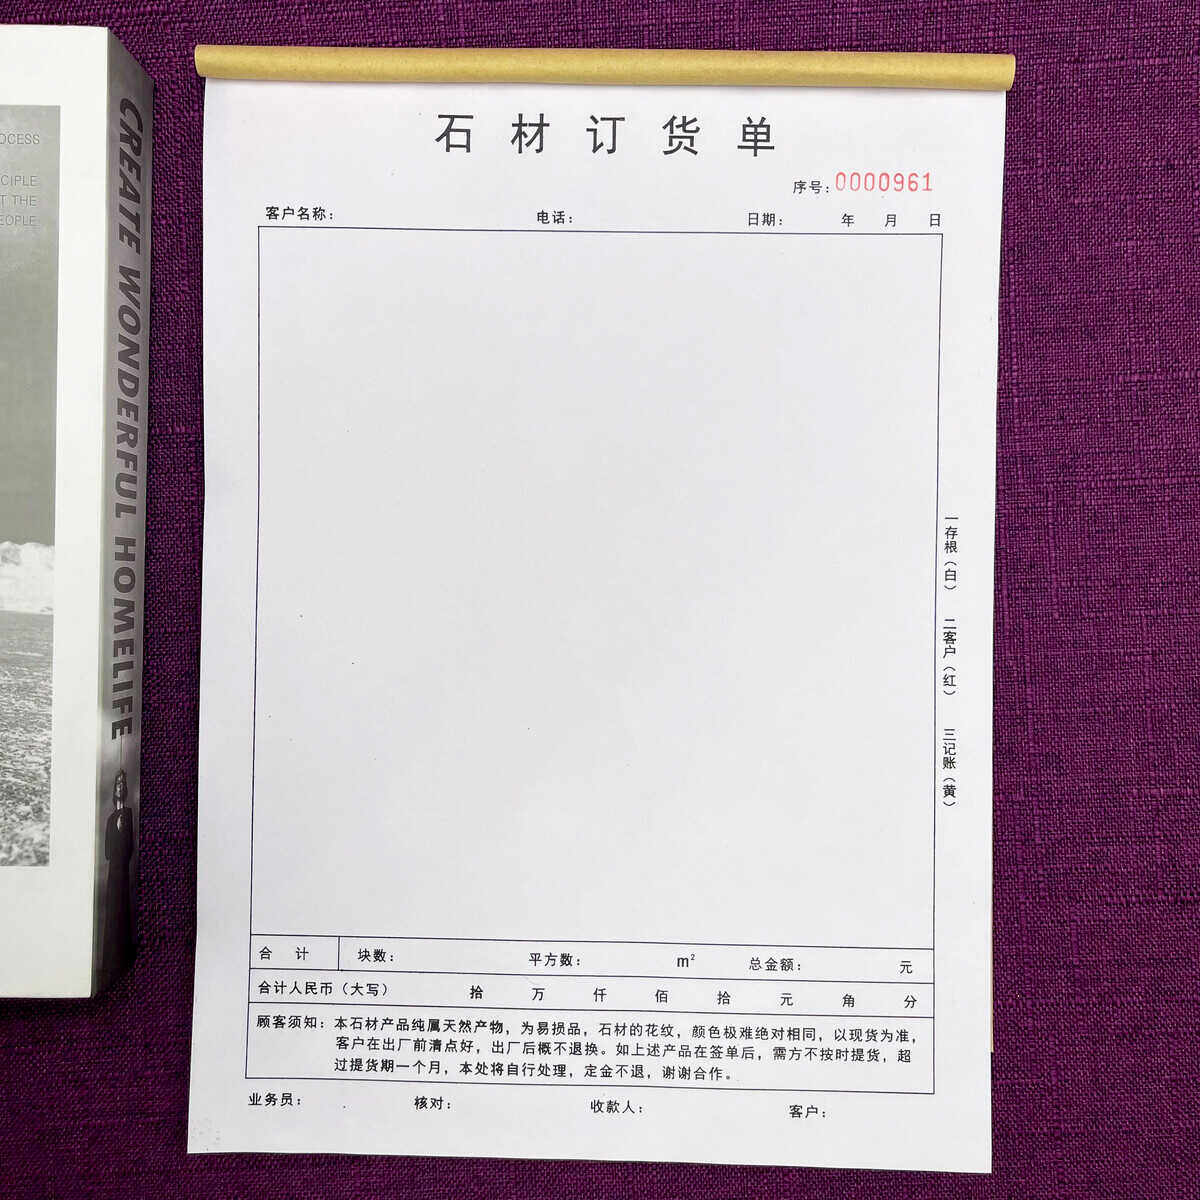 石材订货单
序号:0000961
客户名称: 电话: 日期: 年 月 日
一存根(白) 二客户(红) 三记账(黄)
合计 块数: 平方数: m² 总金额: 元
合计人民币(大写) 拾 万 仟 佰 拾 元 角 分
顾客须知:本石材产品纯属天然产物,为易损品,石材的花纹,颜色极难绝对相同,以现货为准,
客户在出厂前清点好,出厂后概不退换。如上述产品在签单后,需方不按时提货,超
过提货期一个月,本处将自行处理,定金不退,谢谢合作。
业务员: 核对: 收款人: 客户:
CREATE WONDERFUL HOMELIFE
OCESS
CIPLE
T THE
EOPLE